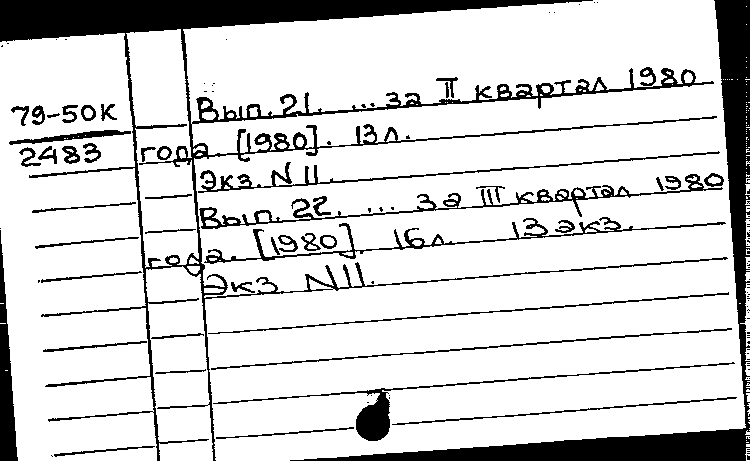 79-50К
2483
Вып. 21. ... за II квартал 1980
года. [1980]. 13л.
Экз. N 11.
Вып. 22. ... за III квартал 1980
года. [1980]. 16л. 13 экз.
Экз. N11.